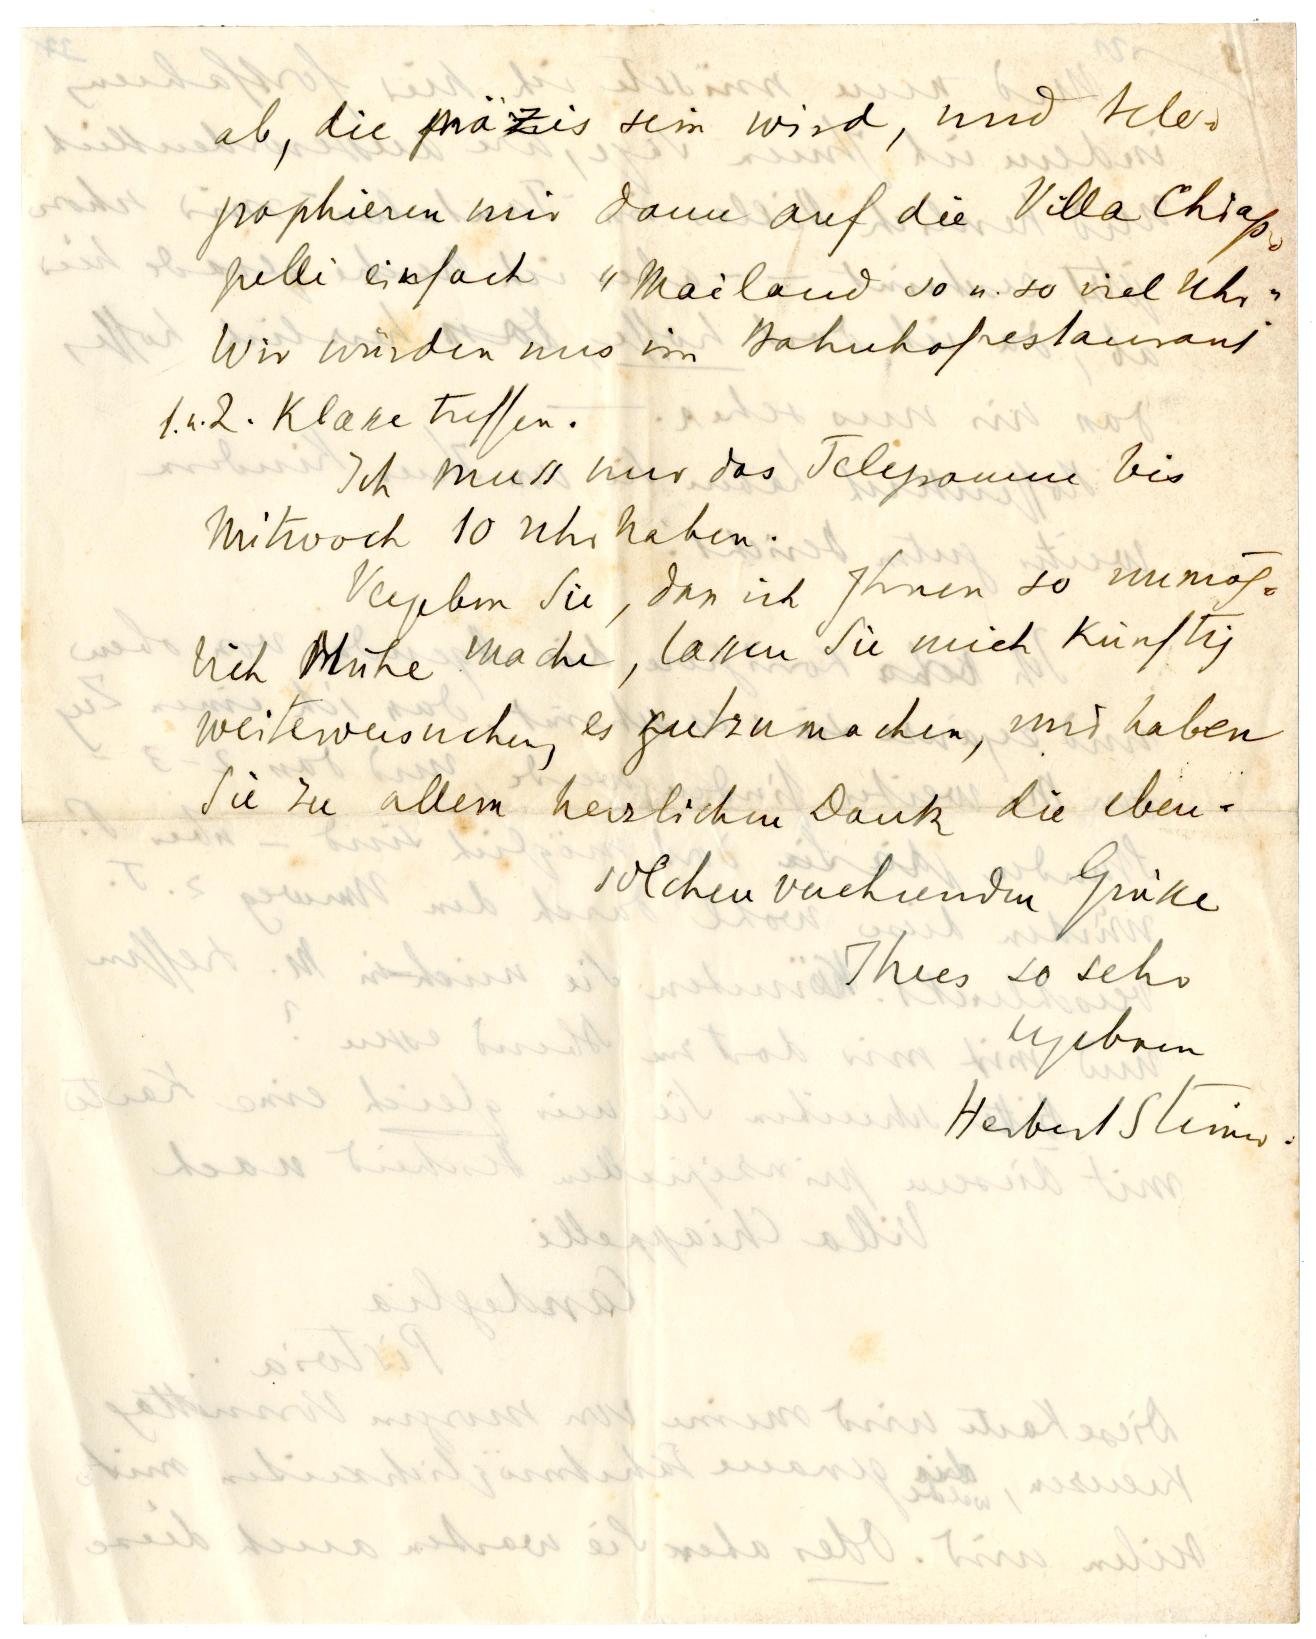 ab, die präzis sein wird, und tele-
graphieren mir dann auf die Villa Chiap-
pelli einfach "Mailand so u. so viel Uhr"
Wir würden uns im Bahnhofrestaurant
1. u. 2. Klasse treffen.
Ich muss nur das Telegramm bis
Mittwoch 10 Uhr haben.
Vergeben Sie, dass ich Ihnen so unmög-
lich Mühe mache, lassen Sie mich künftig
weiterversuchen, es gutzumachen, und haben
Sie zu allem herzlichen Dank die eben-
solchen verehrenden Grüsse
Ihres so sehr
ergebnen
Herbert Steiner.